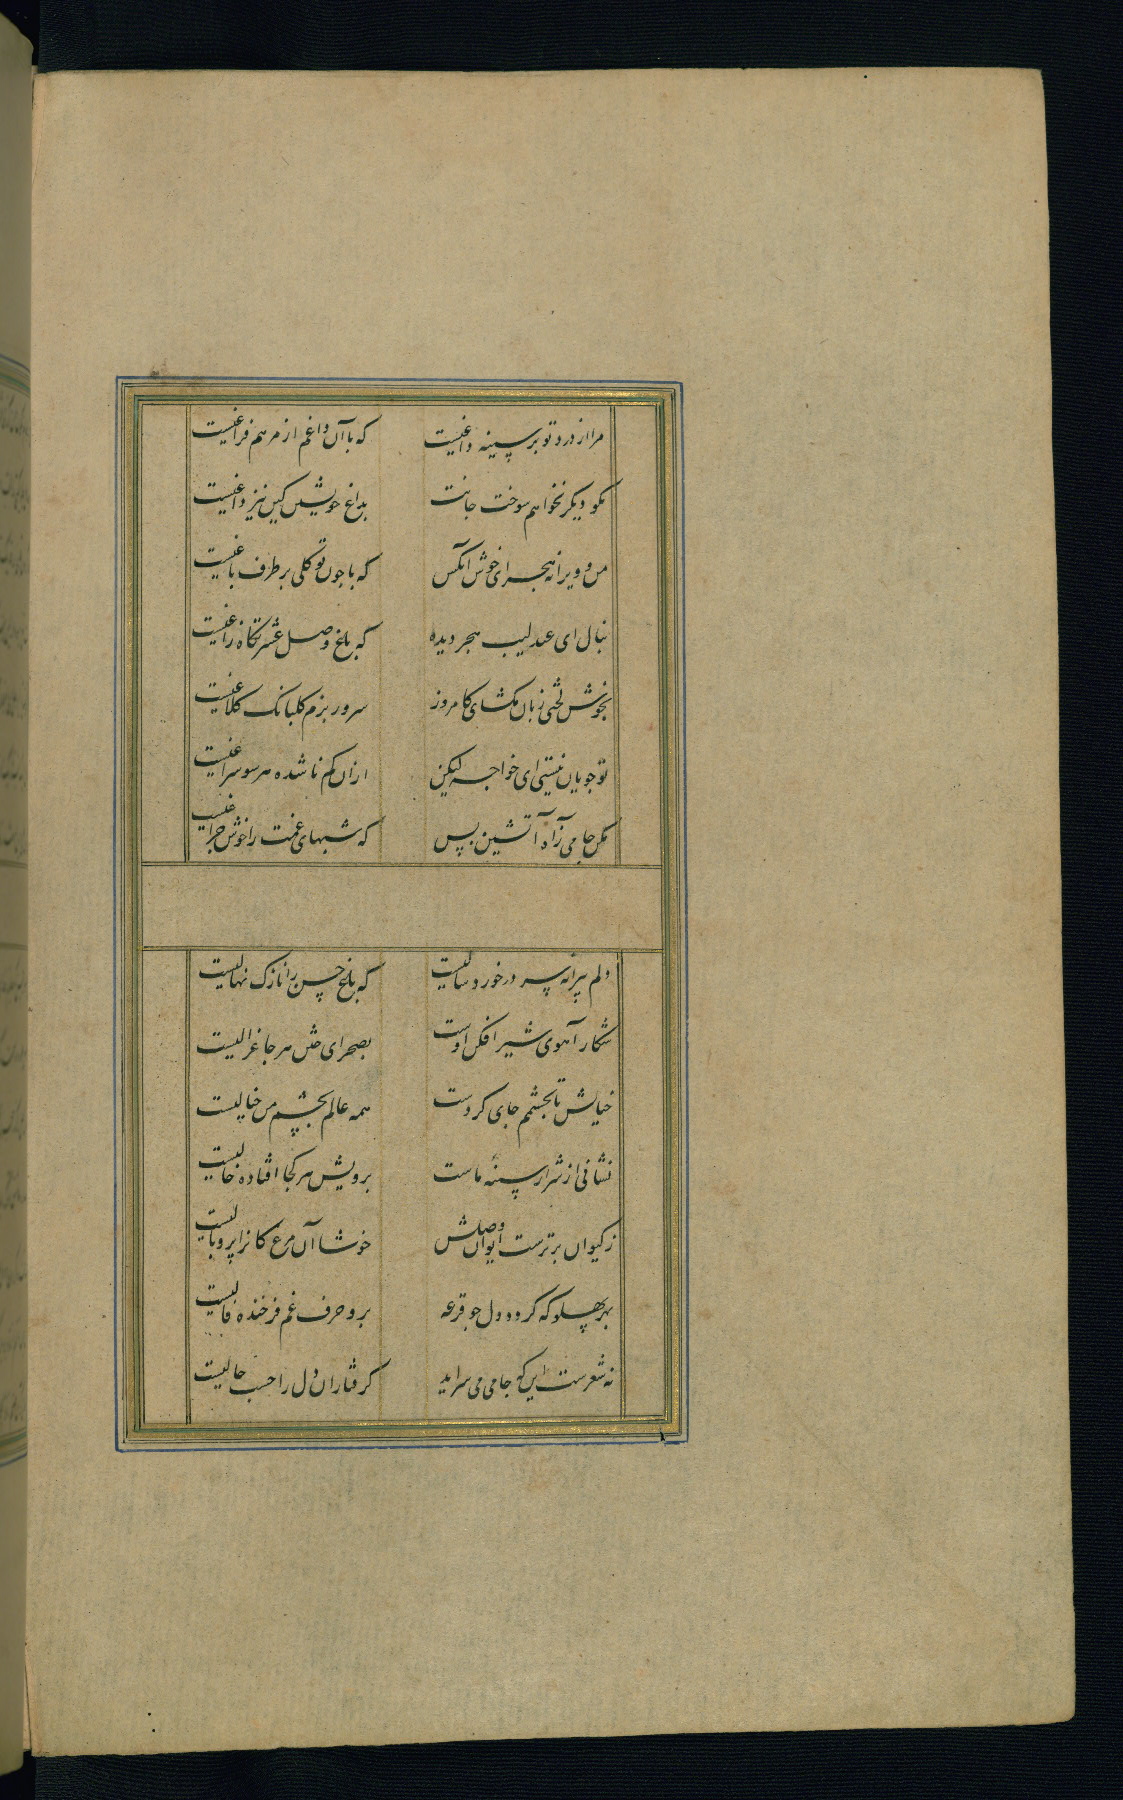 مرا از درد تو بر سینه داغیست که با آن داغم از مرهم فراغیست
مکو دیکر نخواهم سوخت جانت بداغ خویش کین نیز داغیست
من و ویرانه هجر ای خوش آنکس که با چون تو کلی بر طرف باغیست
بنال ای عندلیب هجر دیده که باغ وصل عشرتکاه زاغیست
خوش زبان مکشای کامروز سرور بزم کلبانک کلاغیست
تو جویان نیستی ای خواجه لیکن از ان کم ناشده هر سو سراغیست
مکن جامی ز آه آتشین بس که شبهای غمت را خوش چراغیست
دلم پیرانه سر در خورد سالیست که باغ حسن را نازک نهالیست
شکار آهوی شیر افکن اوست بصحرای ختن هر جا غزالیست
خیالش تا بچشمم جای کردست همه عالم بچشم من خیالیست
نشانی از شرار سینه ماست برویش هر کجا افتاده خالیست
ز کیوان برترست ایوان وصلش خوشا آن مرغ کانرا پر و بالیست
بهر پهلو که کردد دل چو قرعه برو حرف غم فرخنده فالیست
نه شعرست این که جامی می سراید کرفتاران دل را حسب حالیست